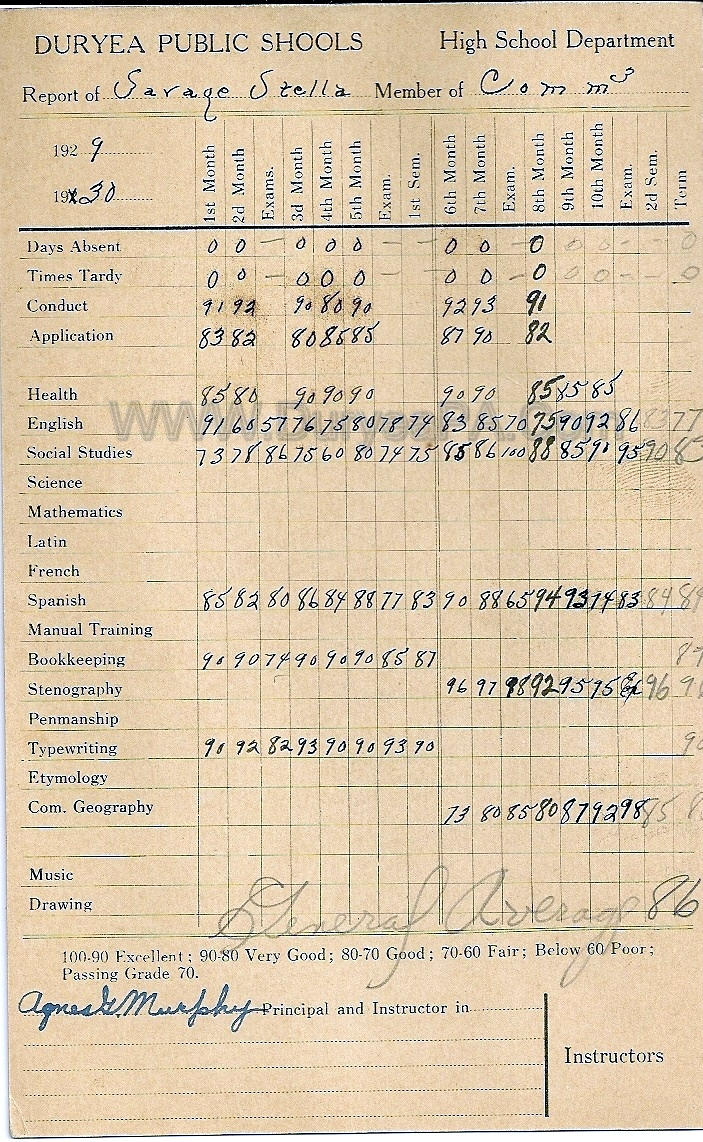 DURYEA PUBLIC SHOOLS High School Department
Report of Savage Stella Member of Comm 3
1929
1930
1st Month 2d Month Exams. 3d Month 4th Month 5th Month Exam. 1st Sem. 6th Month 7th Month Exam. 8th Month 9th Month 10th Month Exam. 2d Sem. Term
Days Absent 0 0 – 0 0 0 – – 0 0 – 0 0 0 – – 0
Times Tardy 0 0 – 0 0 0 – – 0 0 – 0 0 0 – – 0
Conduct 91 92 90 80 90 92 93 91
Application 83 82 80 85 85 87 90 82
Health 85 80 90 90 90 90 90 85 85 85
English 91 60 57 76 75 80 78 74 83 85 70 75 90 92 86 83 77
Social Studies 73 78 86 75 60 80 74 75 85 86 100 88 85 90 95 90 83
Science
Mathematics
Latin
French
Spanish 85 82 80 86 84 88 77 83 90 88 65 94 93 94 83 84
Manual Training
Bookkeeping 90 90 74 90 90 90 85 87 87
Stenography 96 97 98 92 95 95 96
Penmanship
Typewriting 90 92 82 93 90 90 93 90 90
Etymology
Com. Geography 73 80 85 80 87 92 98 85
Music
Drawing
General Average 86
100-90 Excellent; 90-80 Very Good; 80-70 Good; 70-60 Fair; Below 60 Poor;
Passing Grade 70.
Agnes G. Murphy Principal and Instructor in
Instructors